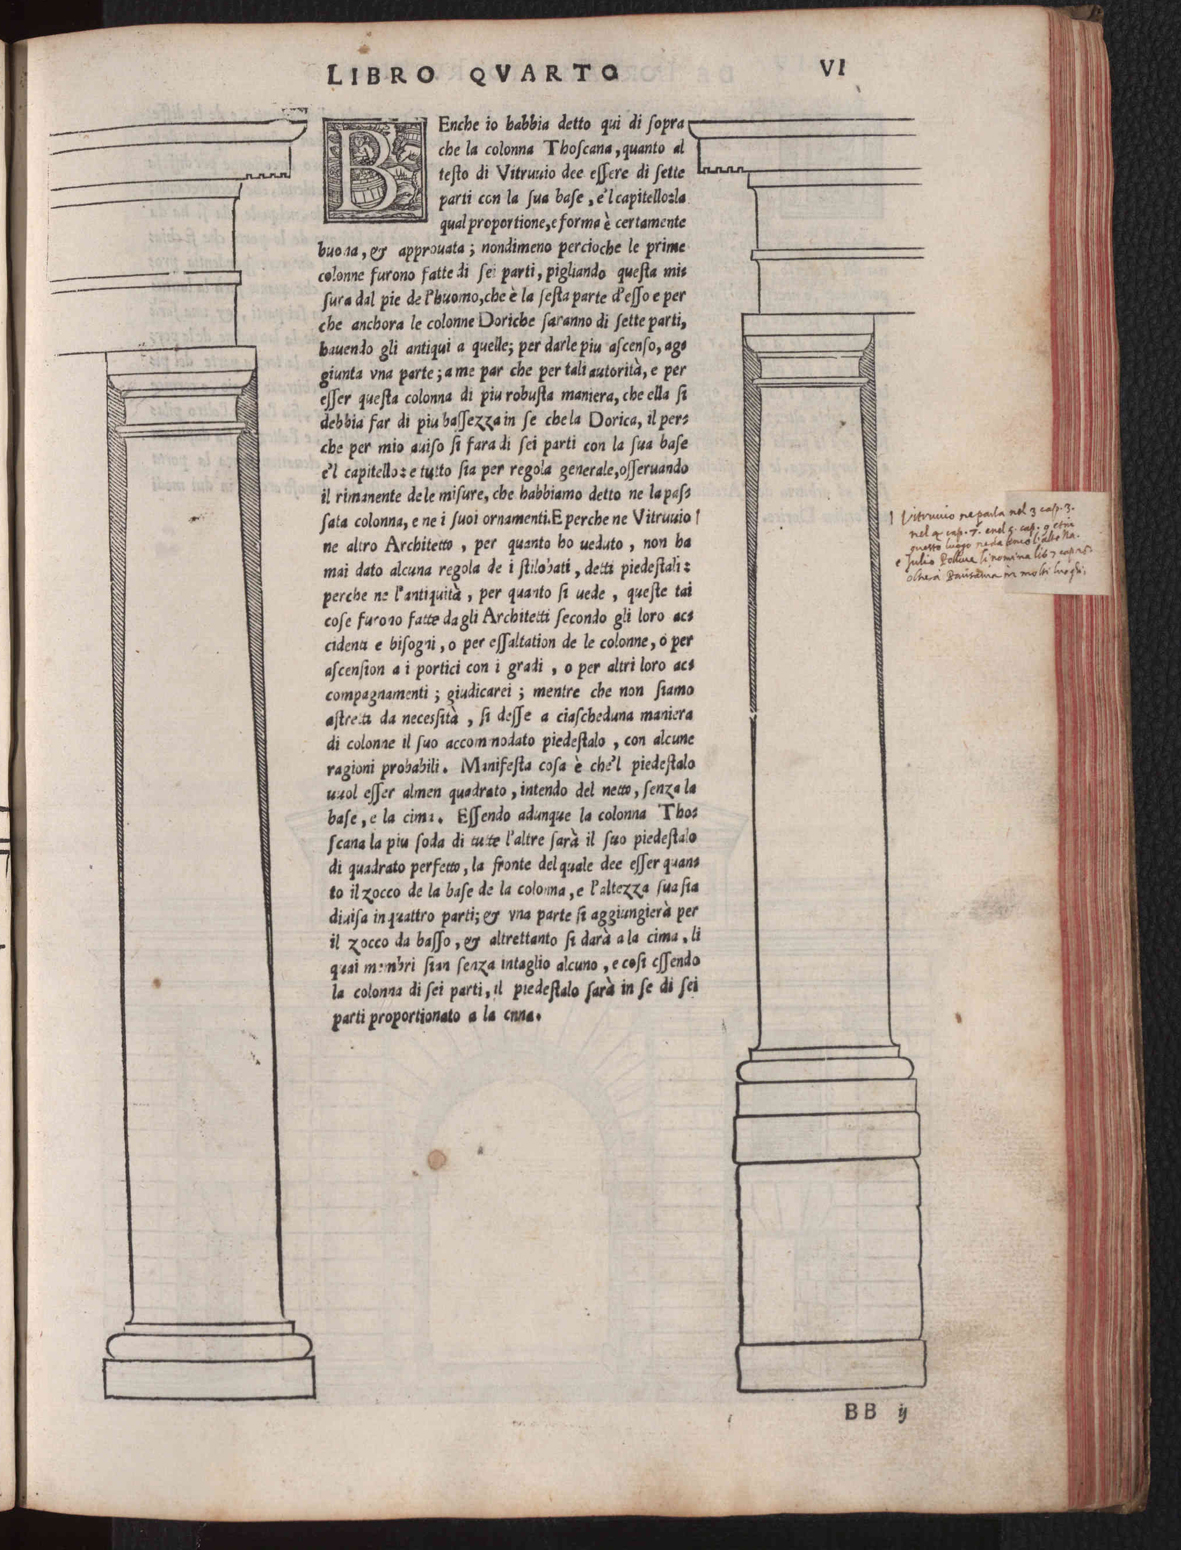 LIBRO QVARTO
VI
BEnche io habbia detto qui di ſopra
che la colonna Thoſcana, quanto al
teſto di Vitruuio dee eſſere di ſette
parti con la ſua baſe, e'l capitello: la
qual proportione, e forma è certamente
buona, & approuata; nondimeno percioche le prime
colonne furono fatte di ſei parti, pigliando queſta mi⸗
ſura dal pie de l'huomo, che è la ſeſta parte d'eſſo e per
che anchora le colonne Doriche ſaranno di ſette parti,
hauendo gli antiqui a quelle; per darle piu aſcenſo, ag⸗
giunta vna parte; a me par che per tali autorità, e per
eſſer queſta colonna di piu robuſta maniera, che ella ſi
debbia far di piu baſſezza in ſe che la Dorica, il per⸗
che per mio auiſo ſi fara di ſei parti con la ſua baſe
e'l capitello: e tutto ſia per regola generale, oſſeruando
il rimanente de le miſure, che habbiamo detto ne la paſ⸗
ſata colonna, e ne i ſuoi ornamenti. E perche ne Vitruuio
ne altro Architetto, per quanto ho ueduto, non ha
mai dato alcuna regola de i ſtilobati, detti piedeſtali:
perche ne l'antiquità, per quanto ſi uede, queſte tai
coſe furono fatte da gli Architetti ſecondo gli loro ac⸗
cidenti e biſogni, o per eſſaltation de le colonne, o per
aſcenſion a i portici con i gradi, o per altri loro ac⸗
compagnamenti; giudicarei; mentre che non ſiamo
aſtretti da neceſſità, ſi deſſe a ciaſcheduna maniera
di colonne il ſuo accommodato piedeſtalo, con alcune
ragioni probabili. Manifeſta coſa è che'l piedeſtalo
uuol eſſer almen quadrato, intendo del netto, ſenza la
baſe, e la cima. Eſſendo adunque la colonna Tho⸗
ſcana la piu ſoda di tutte l'altre ſarà il ſuo piedeſtalo
di quadrato perfetto, la fronte del quale dee eſſer quan⸗
to il zocco de la baſe de la colonna, e l'altezza ſua ſia
diuiſa in quattro parti; & vna parte ſi aggiungierà per
il zocco da baſſo, & altrettanto ſi darà a la cima, li
quai membri ſian ſenza intaglio alcuno, e coſi eſſendo
la colonna di ſei parti, il piedeſtalo ſarà in ſe di ſei
parti proportionato a la
Vitruuio ne parla nel 3 cap. 3.
nel 4 cap. 7. e nel 5. cap. 9
queſto luogo
e Julio Polluce li nomina lib. 7 cap.
in molti luoghi
BB ij